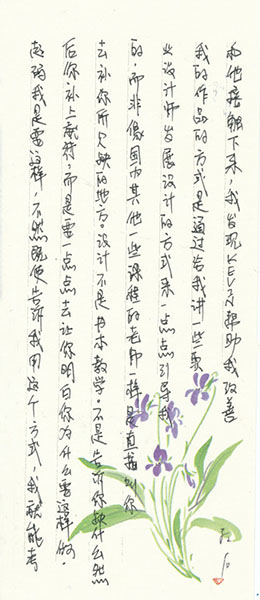 和他接触下来，我发现KEVIN帮助我改善
我的作品的方式是通过告我讲一些要
些设计师发展设计的方式来一点点引导我
的，而非像国内其他一些课程的老师一样是直指到你
去补你所欠缺的地方。设计不是书本教学。不是告诉你缺什么然
后你补上就好。而是需一点点去让你明白你为什么要这样做。
起码我是要这样，不然既使告诉我用这个方式，我就能考